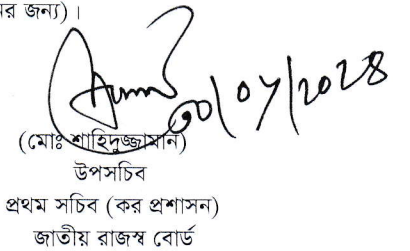 জন্য)।
৩০/০৭/২০২৪
(মোঃ শাহিদুজ্জামান)
উপসচিব
প্রথম সচিব (কর প্রশাসন)
জাতীয় রাজস্ব বোর্ড